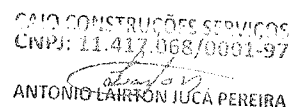 CAIO CONSTRUÇÕES SERVIÇOS
CNPJ: 11.417.068/0001-97
ANTONIO LAIRTON JUCÁ PEREIRA